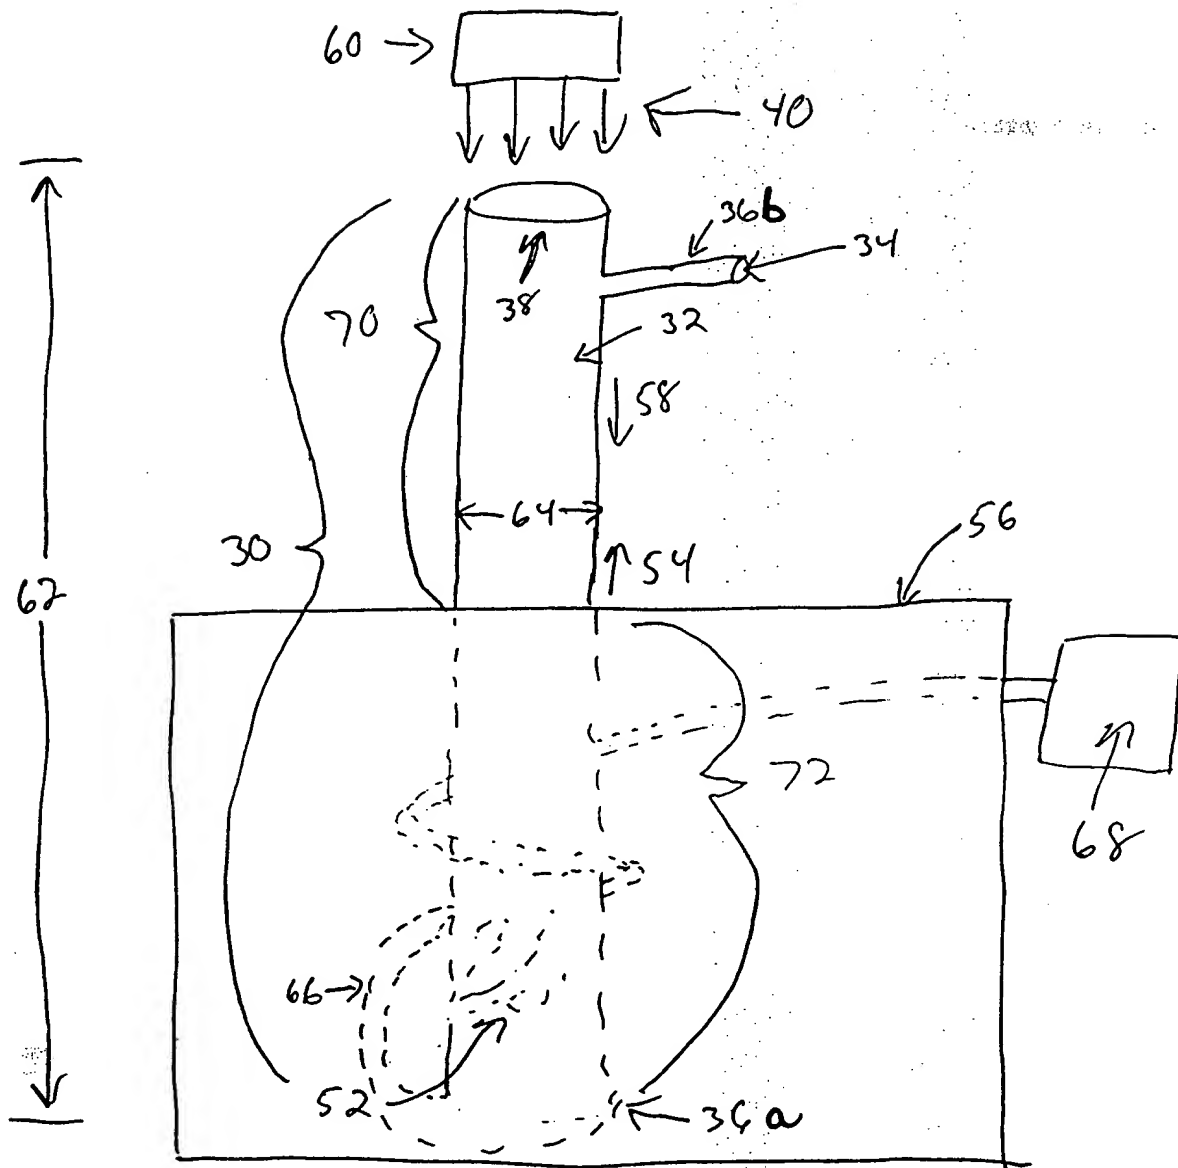 60
40
36b
34
38
70
32
58
64
30
54
56
62
72
68
66
52
36a